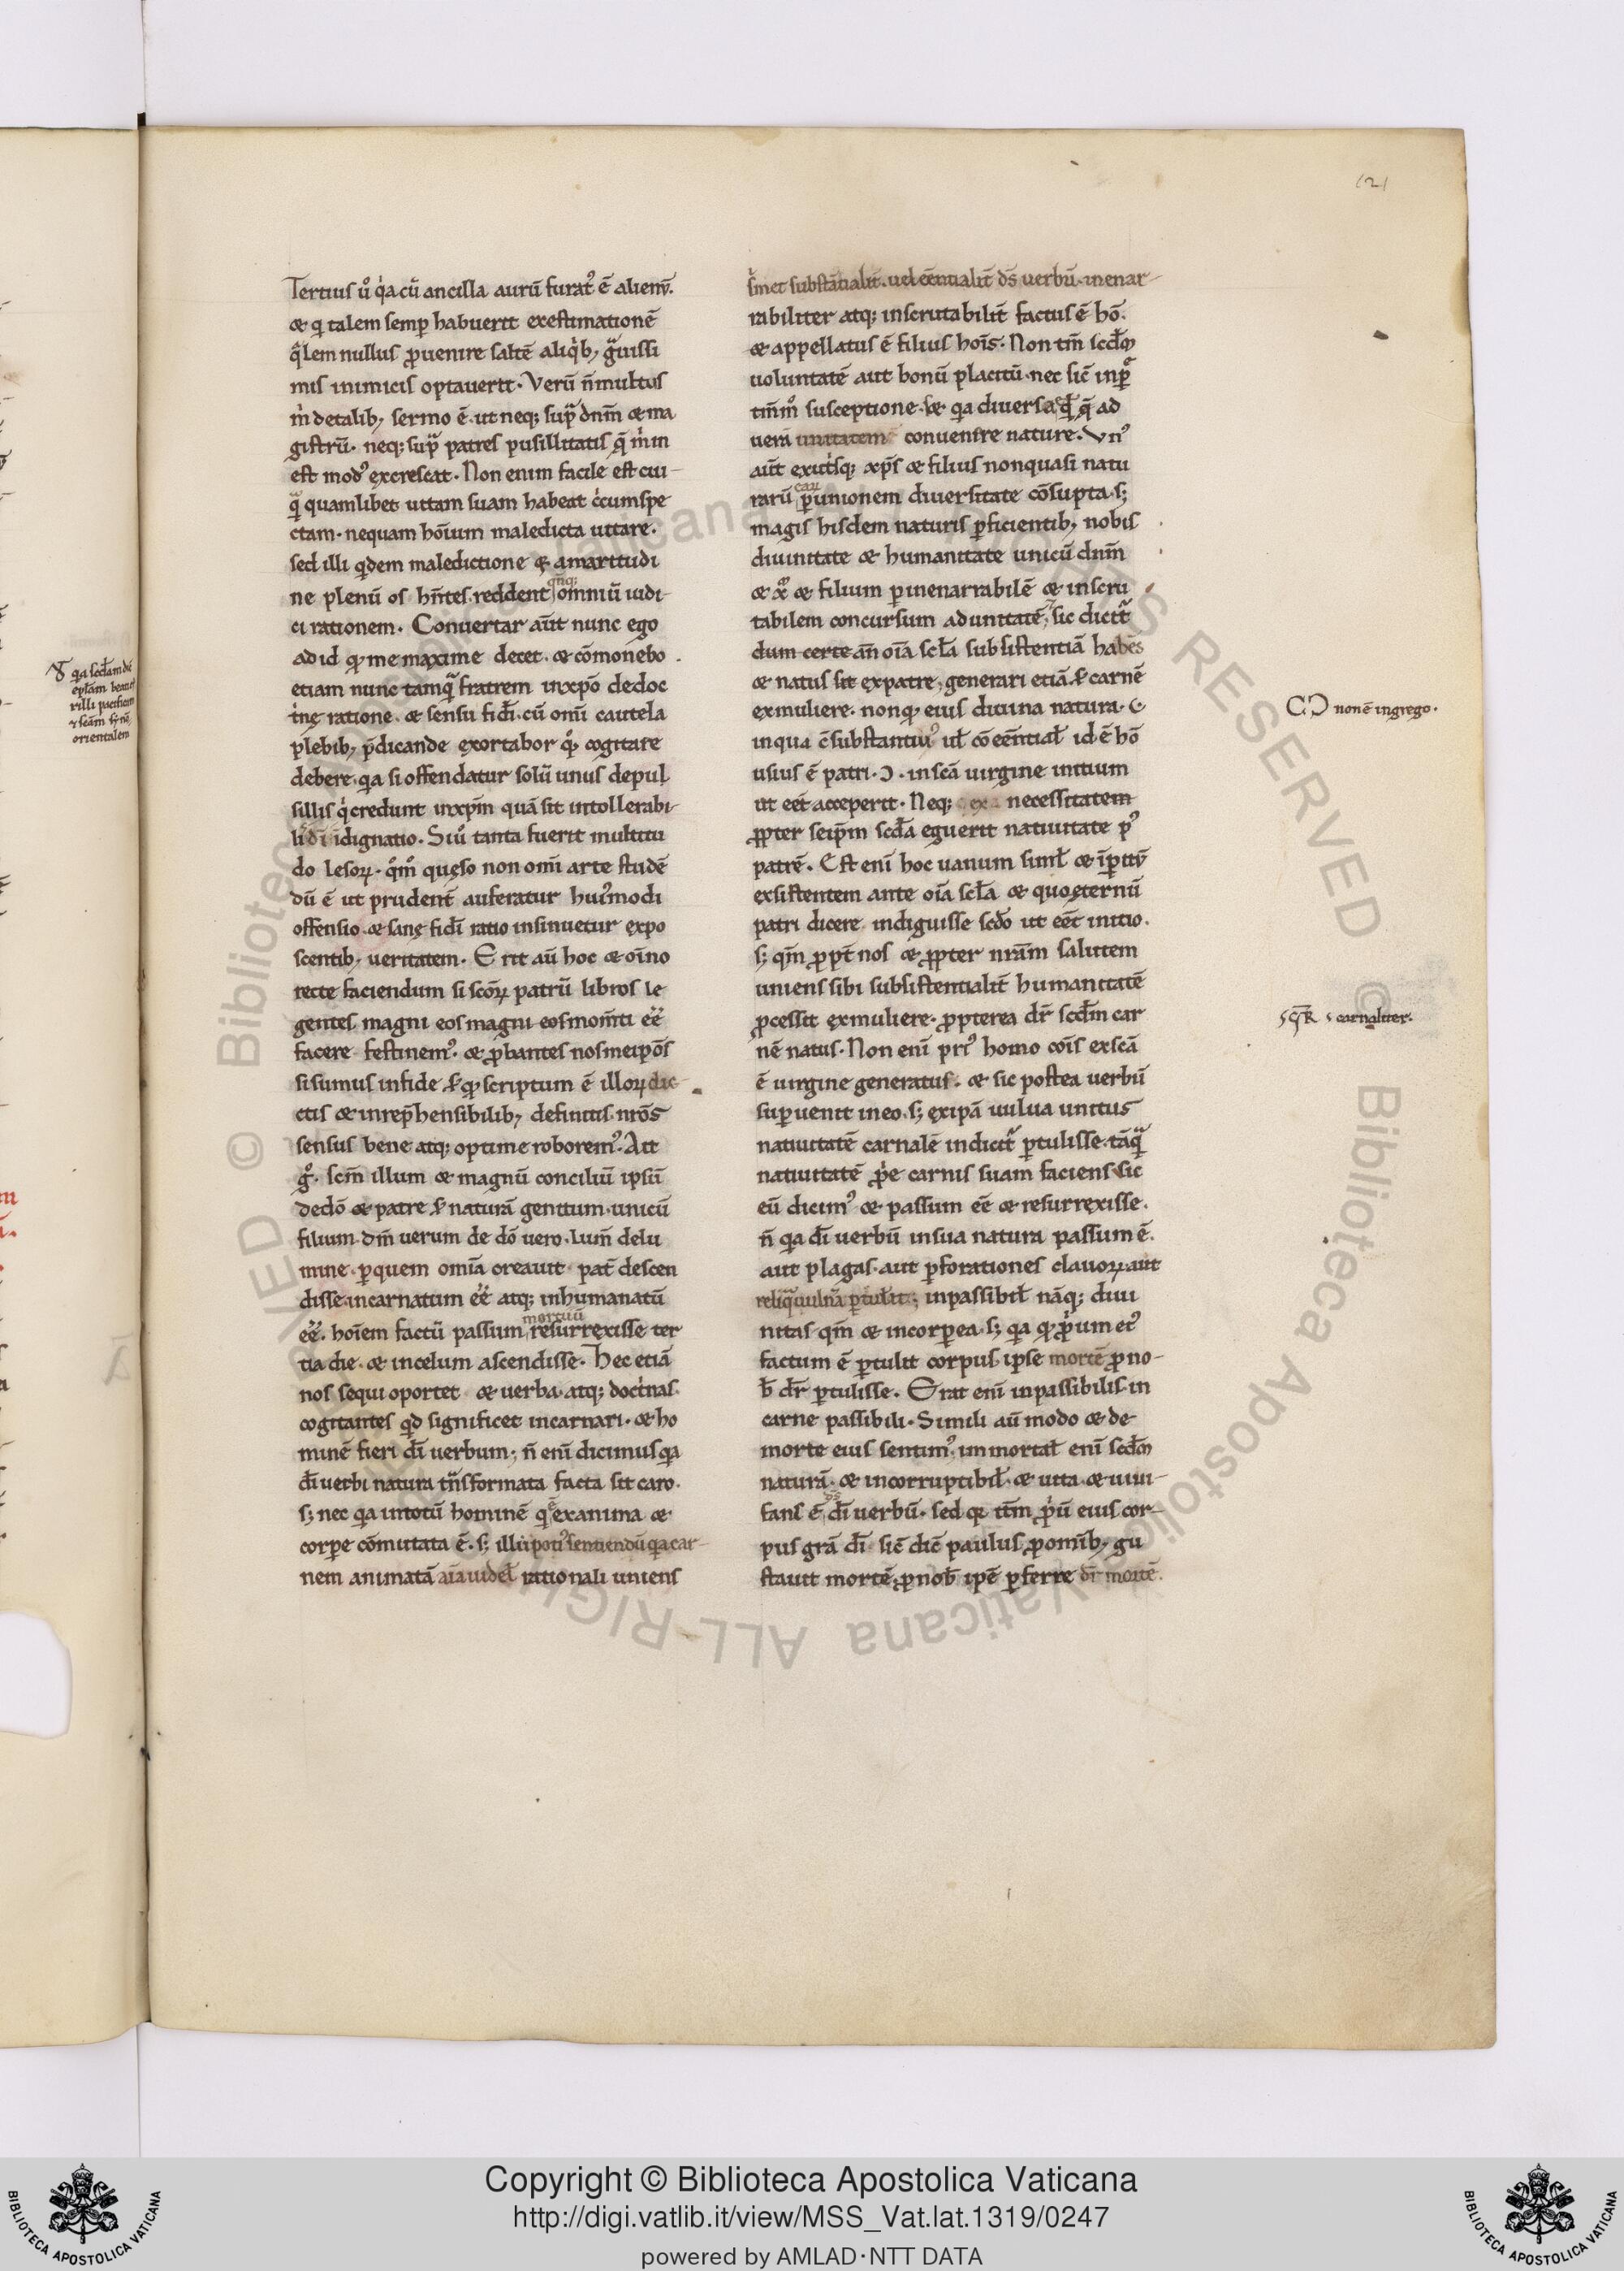 121
Tertius u͛ q̇a cū ancilla aurū furat᷒ ē alienū.
& q talem semp habuerit exestimationē
q̄lem nullus ꝓuenire saltē aliq̇b; g̈uissi
mis inimicis optauerit. Verū n̄ multus
ṁ detalib; sermo ē. ut neq; sup̄ dn̄m & ma
gistrū. neq; sup̄ patres pusillitatis q̄ ṁ in
est mod᷒ excrescat. Non enim facile est cui
q̄ quamlibet uitam suam habeat ċcumspe
ctam. nequam hoīum maledicta uitare.
sed illi qdem maledictione & amaritudi
ne plenū os hn̄tes reddent omniū iudi
ci rationem. Conuertar aūt nunc ego
ad id qđ me maxime decet. & cōmonebo
etiam nunc tamq̄ fratrem in xp̄o dedoc
tinę ratione. & sensu fidi. cū om̄i cautela
plebib; p̄dicande exortabor qđ cogitare
debere. qa si offendatur solū unus depu
sillis q̇ credunt in xp̄m quā sit intollerabi
li di idignatio. Siu͛ tanta fuerit multitu
do lesoꝝ. qm̊ quęso non om̄i arte studē
dū ē ut prudent̄ auferatur hui᷒modi
offensio. & sanę fidi ratio insinuetur expo
scentib; ueritatem. Erit aū hoc & oīno
recte faciendum si sc̄oꝝ patrū libros le
gentes magni eos magni eos mom̄ti eē
facere festinem᷒. & ꝓbantes nosmeipōs
si sumus in fide s̄ qđ scriptum ē illoꝝ dic
ctis & inrep̄hensibilib; definitis nr̄os
sensus bene atq; optime roborem᷒. Ait
g̊. sc̄m illum & magnū conciliū ipsū
de dō & patre s̄ naturā genitum. unicū
filium. dm̄ uerum de dō uero. lum̄ de lu
mine. p quem omīa creauit pat̄ descen
disse. incarnatum eē atq; inhumanatū
eē. hoīem factū passum, mortuū resurrexisse ter
tia die. & in celum ascendisse. Hec etiā
nos sequi oportet & uerba. atq; doctinas.
cogitantes qd significet incarnari. & ho
minē fieri di uerbum; n̄ enī dicimus qa
di uerbi natura tn̄sformata facta sit caro.
s; nec qa in totū hominē q̄ ē ex anima &
corpe cōmutata ē. s; illu poti᷒ sentiendū qa car
nem animatā aīa uidel̄ rationali uniens
s̄met substātialit̄. uel eēntialit̄ dš uerbū. inenar
rabiliter atq; inscrutabilit̄ factus ē hō.
& appellatus ē filius hoīs. Non tm̄ scdm̄
uoluntatē aut bonū placitū. nec sic̄ in p̄
tm̄m̊ susceptione. s& qa diuersa qđ q̄ ad
uerā unitatem conuenire nature. Vn᷒
aūt ex utisq; xp̄s & filius non quasi natu
rarū p unionem diuersitate cōsupta. s;
magis hisdem naturis pficientib; nobis
diuinitate & humanitate unicū dnm̄
& x̄ & filium p inenarrabilē & inscru
tabilem concursum ad unitatē; sic dicit̄
dum certe an̄ oīa scl̄a subsistentiā habēs
& natus sit ex patre, generari etiā s̄ carnē
ex muliere. non qđ eius diuina natura. C.
in qua c̄substantiu᷒ ul̄ cōeēntial̄ id ē hō
usius ē patri. Ɔ. in scā uirgine initium
ut eēt acceperit. Neq; necessitatem
ꝓpter seip̄m scda eguerit natiuitate p᷒
patrē. Est enī hoc uanum siml̄ & ip̄itū
exsistentem ante oīa scl̄a & quoęternū
patri dicere indiguisse scdo ut eēt initio.
s; qm̄ ꝓpt̄ nos & ꝓpter nrām salutem
uniens sibi subsistentialit̄ humanitatē
ꝓcessit ex muliere. ꝓpterea dr̄ scdm̄ car
nē natus. Non enī pri᷒ homo coīs ex scā
ē uirgine generatus. & sic postea uerbū
supuenit in eo. s; ex ipā uulua unitus
natiuitatē carnalē indicit̄ ptulisse. tāq̄
natiuitatē ꝓpe carnis suam faciens. Sic
eū dicim᷒ & passum eē & resurrexisse.
n̄ qa di uerbū in sua natura passum ē.
aut plagas. aut pforationes clauoꝝ aut
reliq̄ uuln̄a ptulit; inpassibil̄ nāq; diui
nitas. qm̄ & incorporea. s; qa qđ ꝓp̄um ei᷒
factum ē ptulit corpus. ipse mortē ꝓ no
b̄ dr̄ ptulisse. Erat enī inpassibilis in
carne passibili. Simili aū modo & de
morte eius sentim᷒. inmortal̄ enī scdm̄
naturā. & incorruptibil̄. & uita. & uiui
fans ē di uerbū. sed qa itm̄ ꝓp̄ū eius cor
pus grā di sic̄ dic̄ paulus ꝓ omīb; gu
stauit mortē; ꝓ nob̄ ipē pferre dr̄ mortē.
CƆ non ē in grego.
s carnaliter.
qa scdam dē
epłam beati
rilli pacificam
orientalem
Copyright © Biblioteca Apostolica Vaticana
http://digi.vatlib.it/view/MSS_Vat.lat.1319/0247
powered by AMLAD·NTT DATA
BIBLIOTECA APOSTOLICA VATICANA
BIBLIOTECA APOSTOLICA VATICANA
© Biblioteca Apostolica Vaticana ALL RIGHTS RESERVED